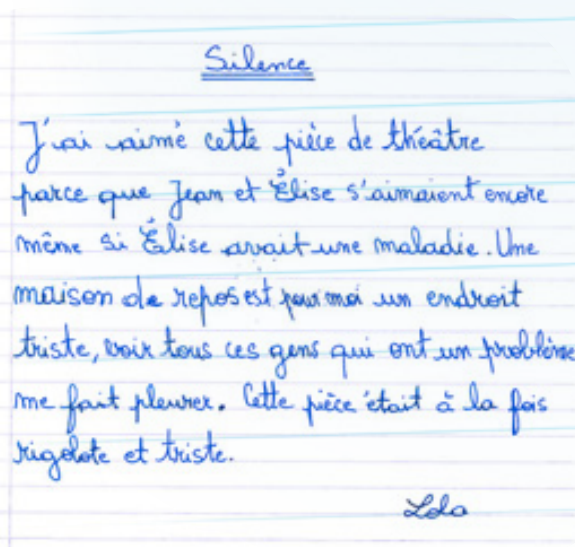 Silence
J'ai aimé cette pièce de théâtre
parce que Jean et Élise s'aimaient encore
même si Élise avait une maladie. Une
maison de repos est pour moi un endroit
triste, voir tous ces gens qui ont un problème
me fait pleurer. Cette pièce était à la fois
rigolote et triste.
Lola